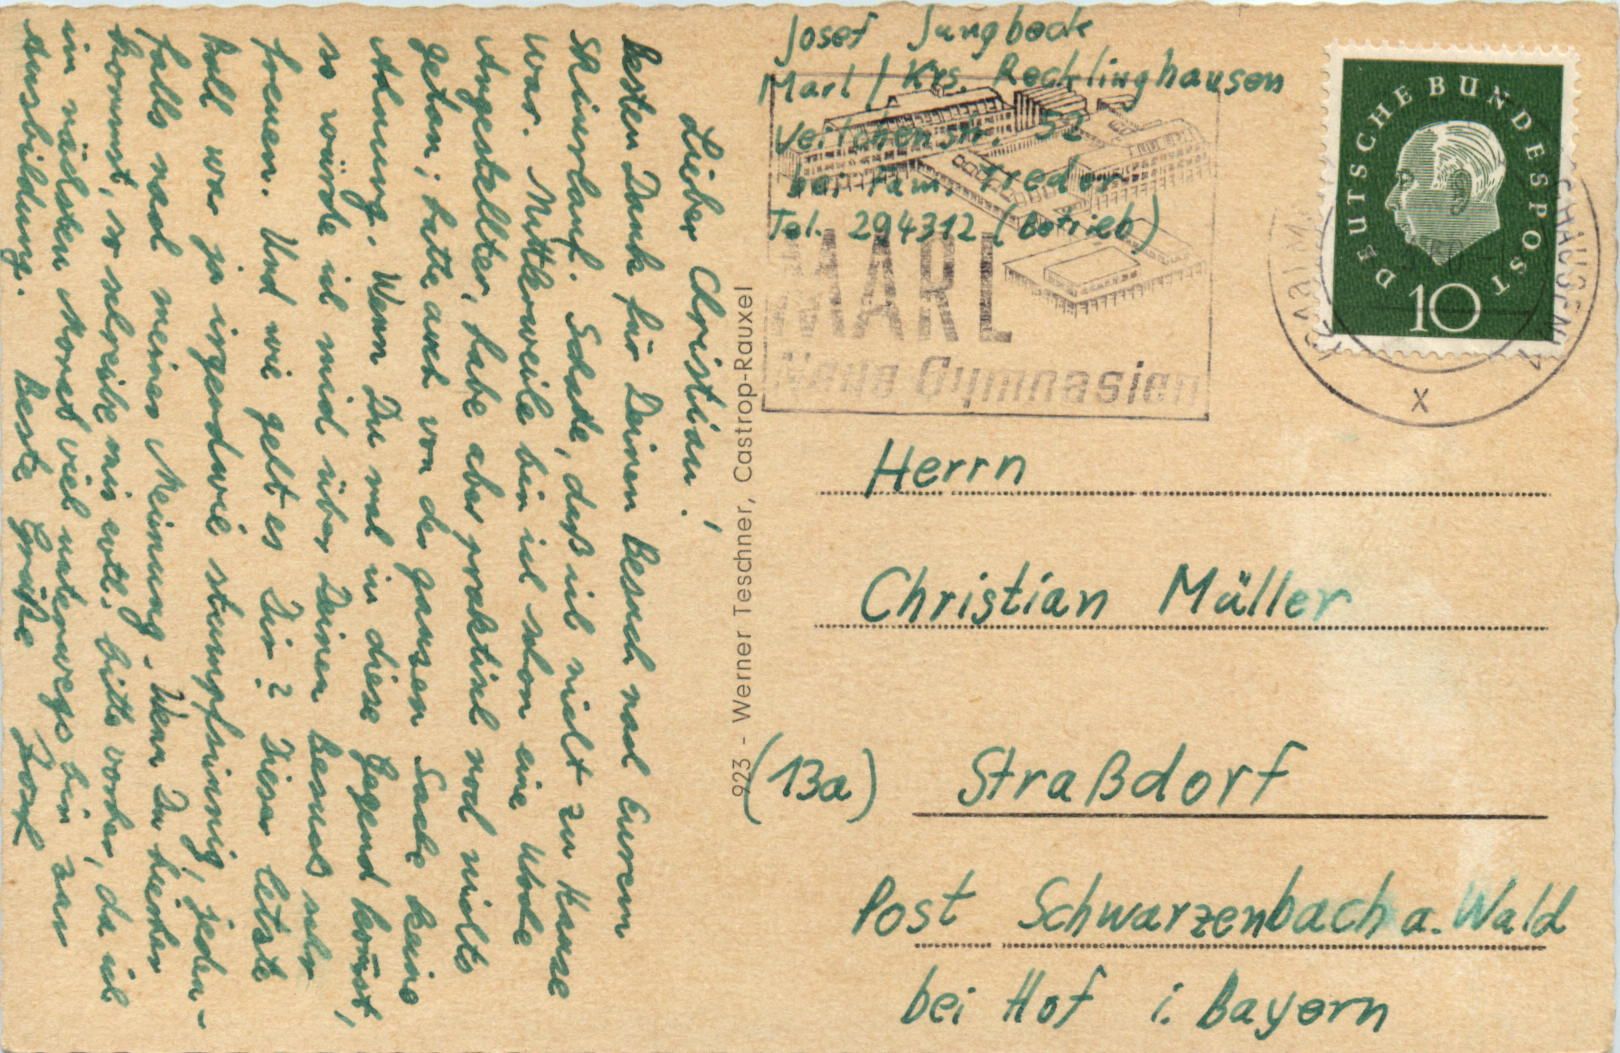 Josef Jungbeck
Marl / Krs. Recklinghausen
str. 52
bei Fam.
Tel. 294312 (Betrieb)
DEUTSCHE BUNDESPOST
10
MARL
Neue Gymnasien
x
Herrn
Christian Müller
(13a) Straßdorf
Post Schwarzenbach a. Wald
bei Hof i. Bayern
923 - Werner Teschner, Castrop-Rauxel
Lieber Christian!
Besten Dank für Deinen Besuch nach Eurem
Skiurlauf. Schade, daß ich nicht zu Hause
war. Mittlerweile bin ich schon eine Woche
Angestellter, habe aber praktisch noch nichts
getan; hatte auch von der ganzen Sache keine
Ahnung. Wenn Du mal in diese Gegend kommst,
so würde ich mich über Deinen Besuch sehr
freuen. Und wie geht es Dir? Dieser letzte
Ball war ja irgendwie stumpfsinnig, jeden-
falls nach meiner Meinung. Wenn Du hierher
kommst, so schreibe mir evtl. bitte vorher, da ich
im nächsten Monat viel unterwegs bin zur
Ausbildung. Beste Grüße Josef